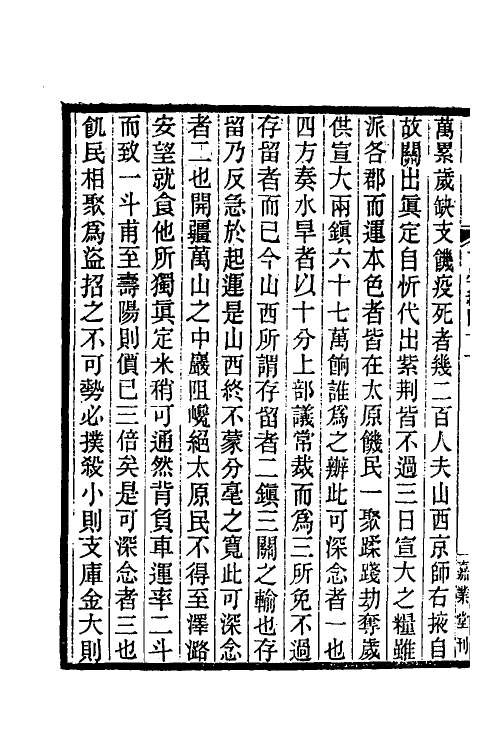 萬累歲缺支饑疫死者幾二百人夫山西京師右掖自
故關出眞定自忻代出紫荆皆不過三日宣大之糧雖
派各郡而運本色者皆在太原饑民一聚蹂踐劫奪歲
供宣大兩鎮六十七萬餉誰爲之辦此可深念者一也
四方奏水旱者以十分上部議常裁而爲三所免不過
存留者而已今山西所謂存留者二鎮三關之輸也存
留乃反急於起運是山西終不蒙分毫之寬此可深念
者二也開疆萬山之中巖阻巉絕太原民不得至澤潞
安望就食他所獨眞定米稍可通然背負車運率二斗
而致一斗甫至壽陽則價已三倍矣是可深念者三也
飢民相聚爲盜招之不可勢必撲殺小則支庫金大則
嘉業堂刊